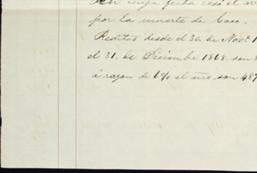 cuya fecha cesó el
por la muerte de Caso.
Reditos desde el 30 de Novᵉ 1
el 31 de Diciembre 1868 son
á razon de 6% el año son 487